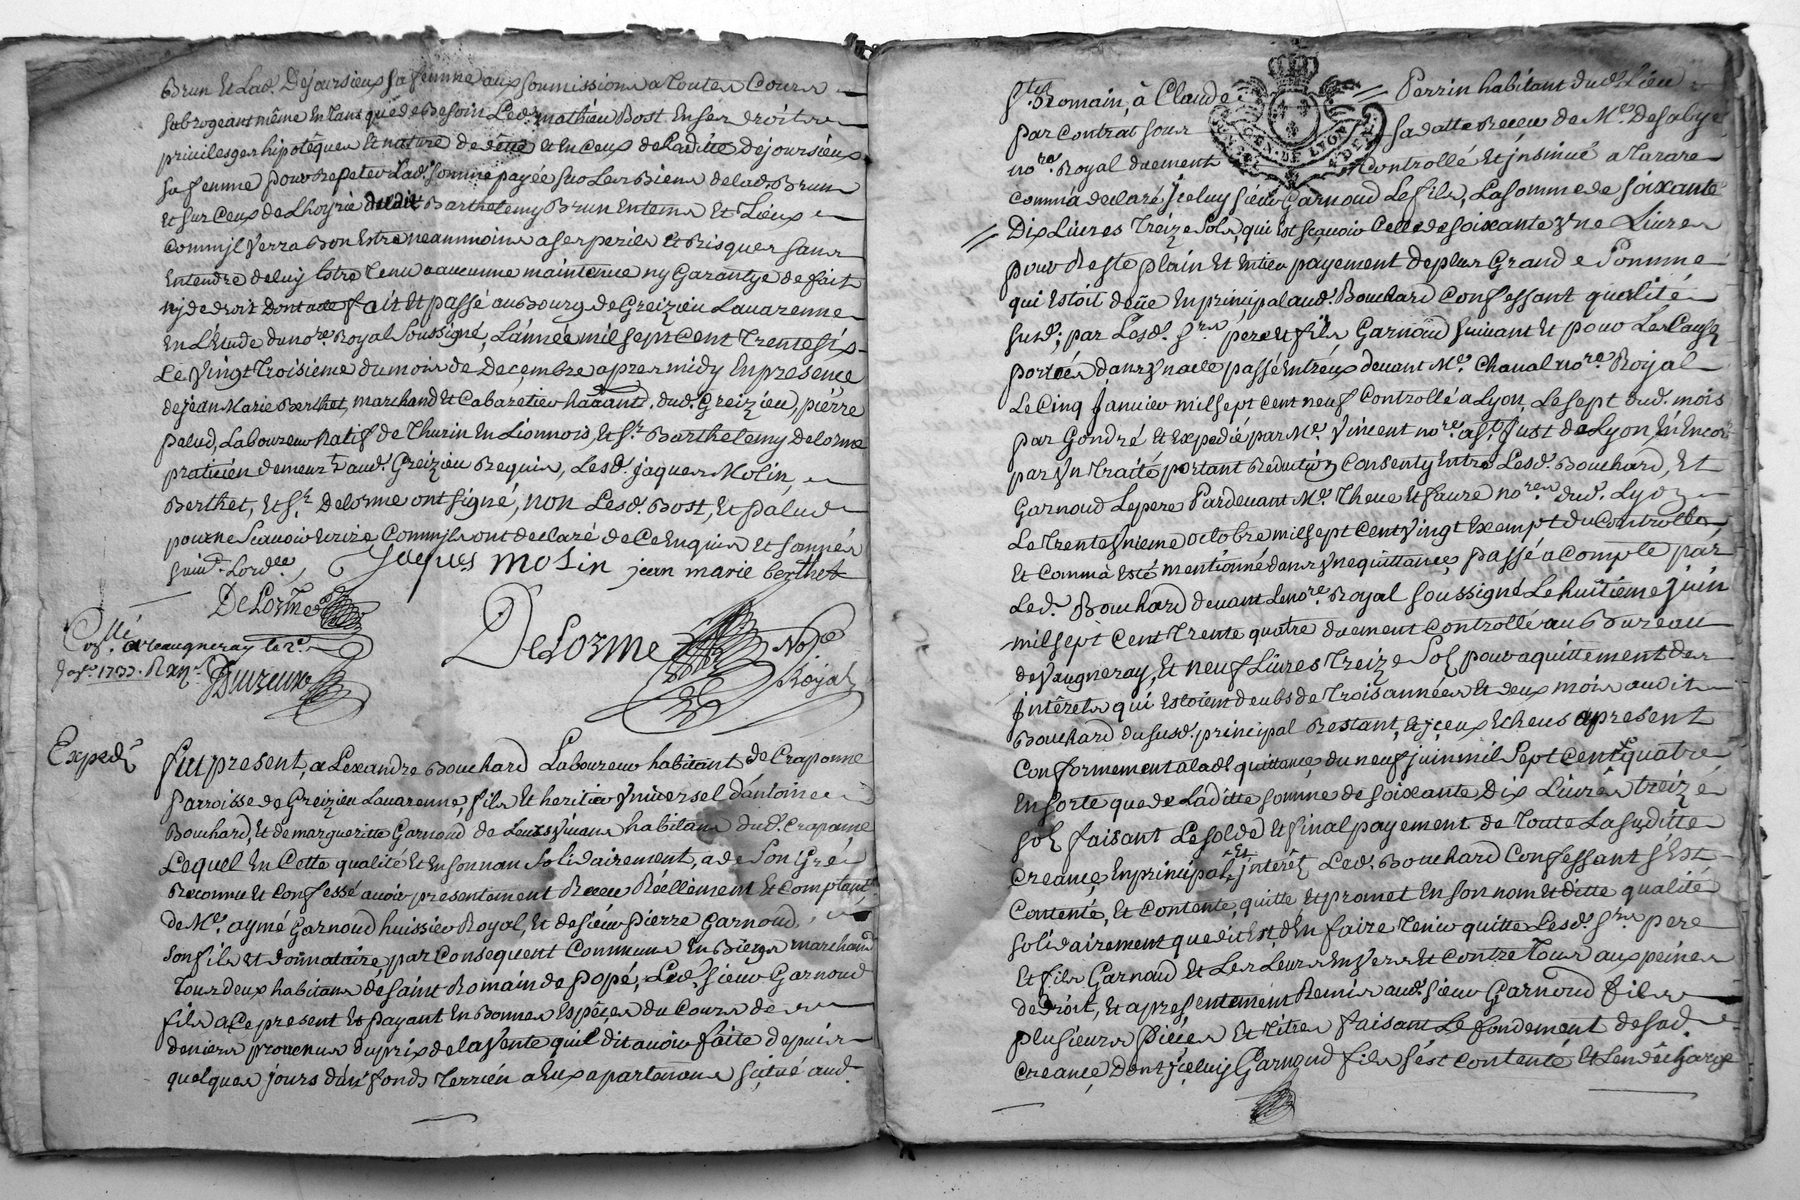 Brun Et Lad. Dejoursieux sa femme aux soumissions a Toutes Cours
subrogeant même En Tant que de Besoin Led. mathieu Bost En ses droits
privileges hipotêques Et nature de dêue et En Ceux de Laditte Dejoursieux
sa femme pour Repeter Lad. Somme payée sur Les Biens de lad. Brun
Et sur Ceux de L'hoyrie dudit Barthelemy Brun En tems Et Lieux
Comm'jl verra Bon Estre neanmoins a ses perils Et Risques sans
Entendre de luy Estre Tenu a aucune maintenue ny Garantye de fait
ny de droit Dont acte fait Et passé au Bourg de Greizieu Lavarenne
En L'Etude du nore. Royal Soussigné, L'année mil sept Cent Trente six
Le Vingt Troisieme du mois de Decembre apres midy En presence
de jean Marie Berthet, marchand Et Cabaretier habitant dud. Greizieu, piérre
palud, Laboureur Natif de Thurin En Lionnois, Et Sr. Barthelemy delorme
praticien demeurt. aud. Greizieu Requis, Lesd. jaques Molin,
Berthet, Et Sr. Delorme ont signé, non Lesd. Bost, Et palud
pour ne Scavoir Ecrire Comm'jls ont declaré de Ce Enquis Et sommés
suivt. Lordce.
jaques mosin jean marie berthet
DeLorme
DeLorme Nore
Royal
Collé. a Vaugneray le 2e.
janr. 1737. R
Expedé
Fut present, aLexandre Bouchard Laboureur habitant de Craponne
Parroisse de Greizieu Lavarenne, fils Et heritier Vniversel d'antoine
Bouchard, Et de margueritte Garnoud de Leurs vivans habitans dud. Craponne
Lequel En Cette qualité Et En son nom Solidairement, a de Son Gré
Reconnu Et Confessé avoir presentement Receu Réellement Et Comptant
de Me. aymé Garnoud huissier Royal, Et de sieur Pierre Garnoud
son fils et donnataire par Consequent Communs En Biens marchand
Tous deux habitans de saint Romain de Popé, Led. sieur Garnoud
fils a Ce present Et payant En Bonnes Espêces du Cours de
deniers provenus du prix de la vente quil dit avoir faite depuis
quelques jours d'un fonds Terrien a Eux apartenans situé aud.
St. Romain, à Claude Perrin habitant dud. Lieu
par Contrat sous sa datte Receu de Me. Desalye
nore. Royal duement Controllé Et jnsinué a Tarare
GEN. DE LYON
Comm'à declaré jceluy sieur Garnoud Le fils, La somme de soixante
Dix Livres Treize Sols, qui Est sçavoir Celle de soixante Vne Livres
pour Reste plain Et Entier payement de plus Grande Somme
qui Estoit dêue En principal aud. Bouchard Confessant qualité
susd.; par Lesd. Srs. pere et fils Garnoud suivant Et pour Les Causes
portées dans Vn acte passé Entr'eux devant Me. Chaval nore. Royal
Le Cinq Janvier mil sept cent neuf Controllé a Lyon Le sept dud. mois
par Gondré Et Expedié par Me. Vincent nore. a St. Just de Lyon, En Encor
par Vn Traité portant Reduction Consenty Entre Lesd. Bouchard, Et
Garnoud Le pere Pardevant Me. Theve Et faure nores. dud. Lyon
Le Trente Vnieme octobre mil sept cent Vingt Exempt du Controlle
Et Comm'à Esté mentionné dans Vne quittance passé a Compte par
Led. Bouchard devant Le nore. Royal soussigné Le huitieme juin
mil sept Cent Trente quatre duement Controllé au Bureau
de Vaugneray, Et neuf Livres Treize Sols pour aquittement des
jntêrets qui Estoient deubs de Trois années Et deux mois audit
Bouchard du susd. principal Restant, Et jceux Echeus apresent
Conformement a lad. quittance du neuf juin mil sept Cent quatre
En sorte que de Laditte somme de soixante Dix Livres treize
sols faisant Le solde Et final payement de Toute La susditte
Creance En principal, Et jntêrêt, Led. Bouchard Confessant s'Est
Contenté, Et Contente, quitte Et promet En son nom Et ditte qualité
solidairement que dit Est d'En faire Tenir quitte Lesd. Srs. Pere
Et fils Garnoud Et Les Leurs Envers Et Contre Tous aux peines
de droit, Et a presentement Remis aud. sieur Garnoud fils
plusieurs Piéces Et Titres faisant Le fondement de sad.
Creance Dont jceluy Garnoud fils s'est Contenté Et L'en décharge